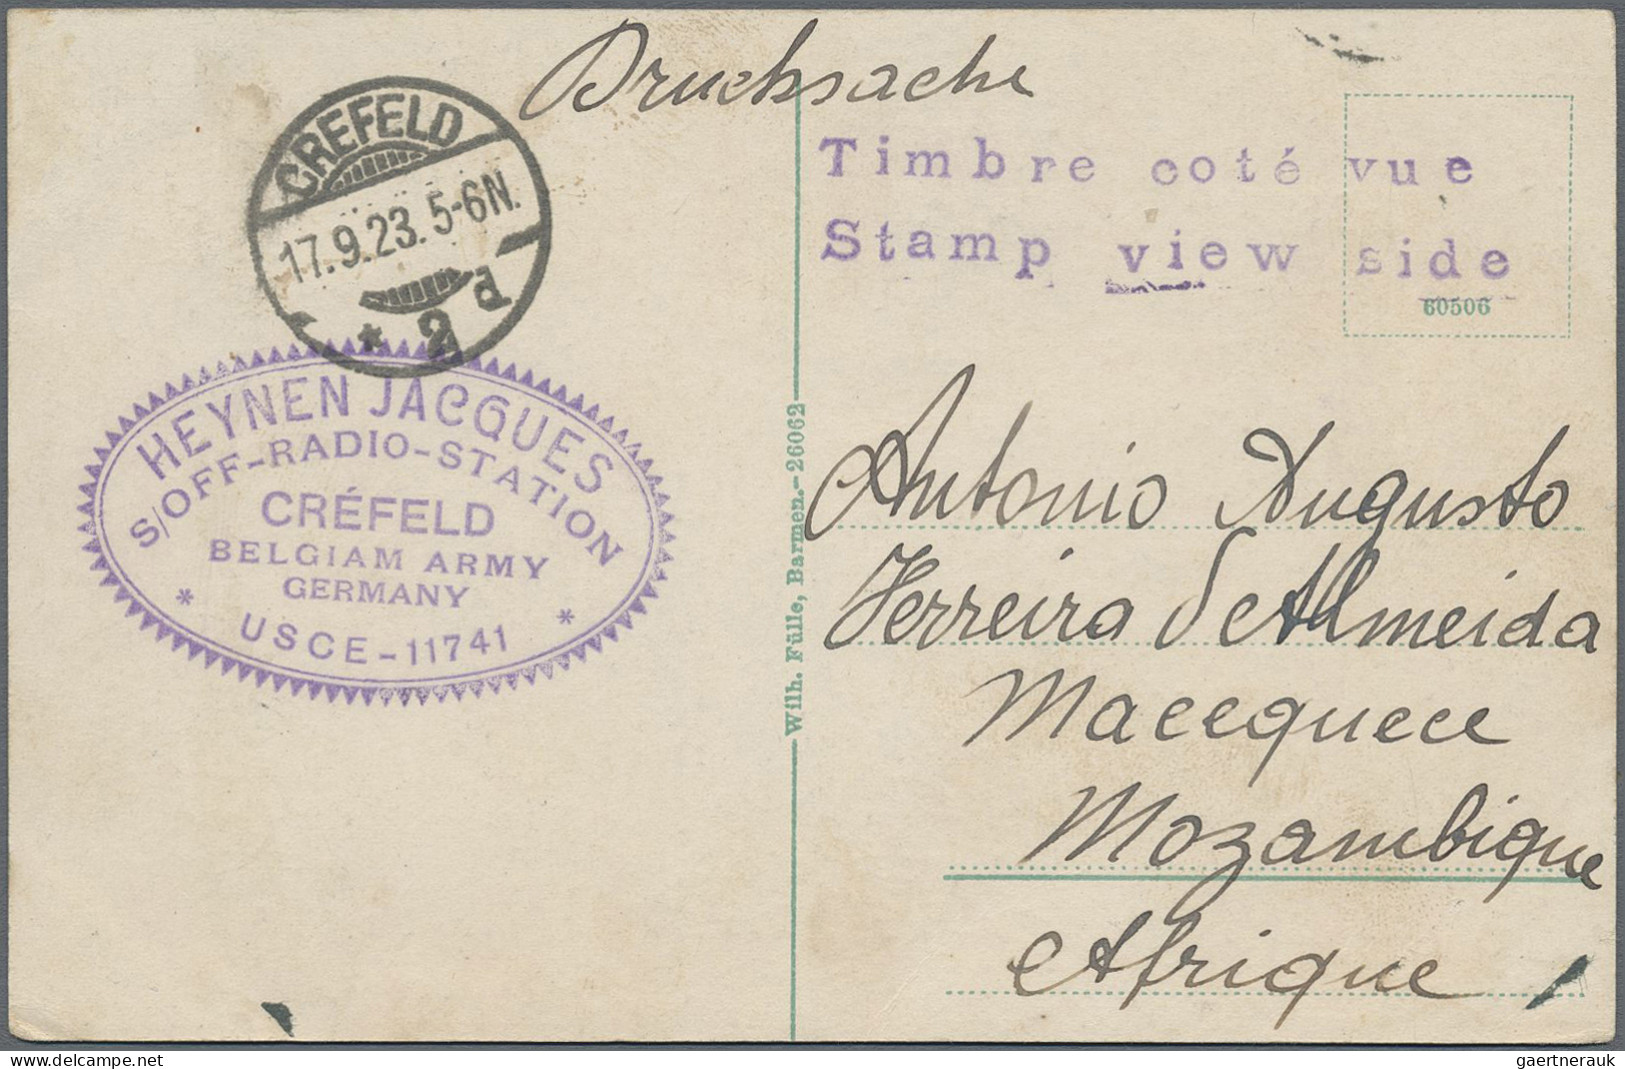 Drucksache
CREFELD
17.9.23. 5-6N.
* 2 d
Timbre coté vue
Stamp view side
60506
HEYNEN JACQUES
S/OFF-RADIO-STATION
CRÉFELD
BELGIAM ARMY
GERMANY
* USCE-11741 *
Wilh. Fülle, Barmen.-26062
Antonio Augusto
Ferreira d'Almeida
Macequece
Mozambique
Afrique
delcampe.net
gaertnerauk